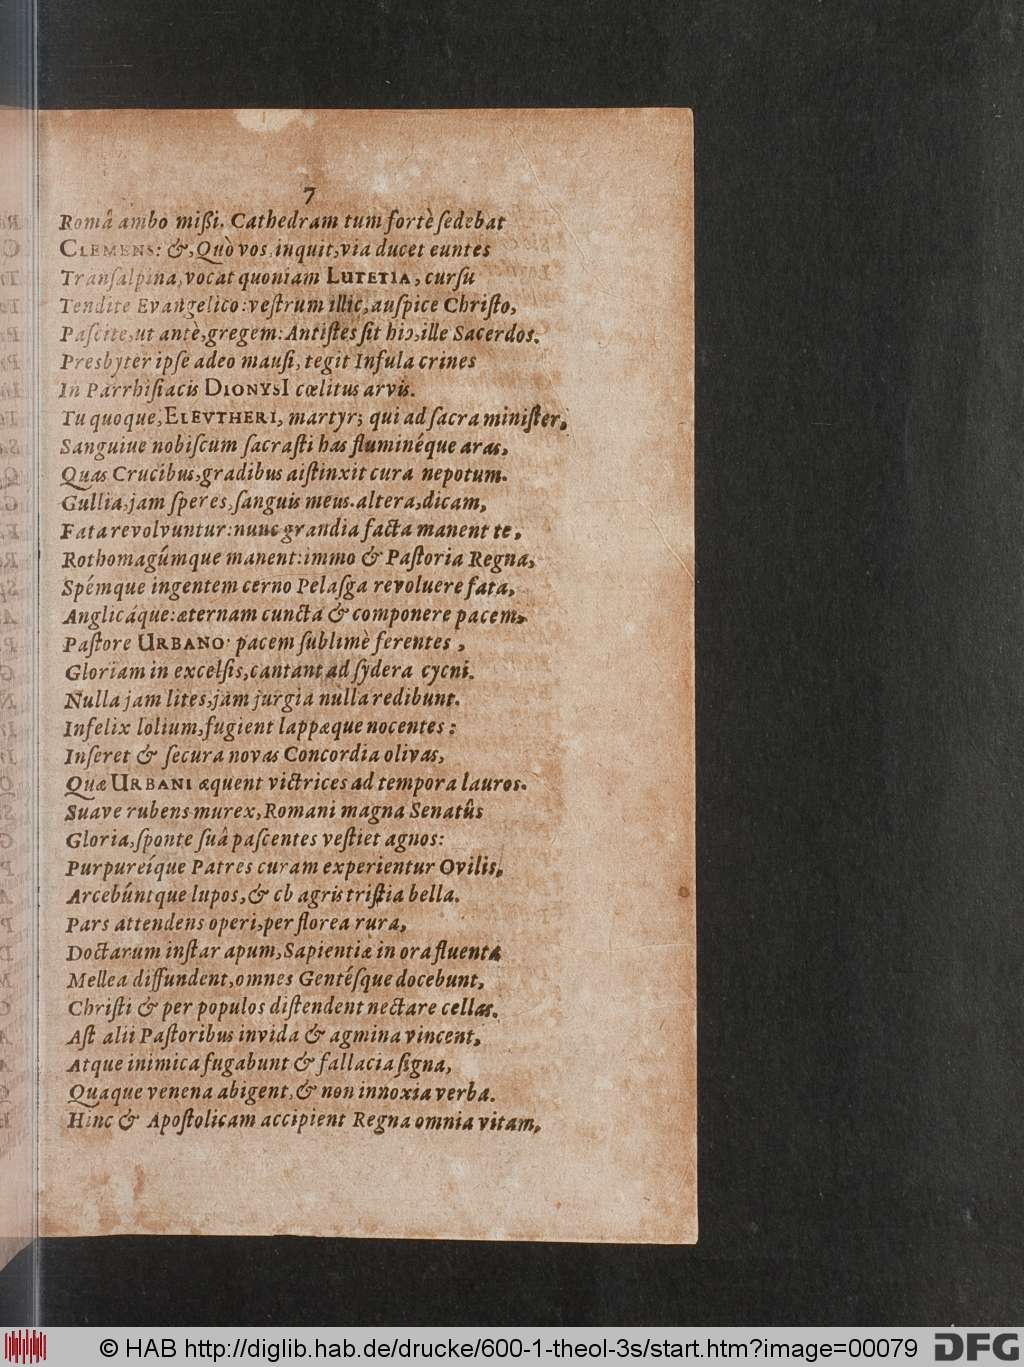 7
Româ ambo mißi. Cathedram tum fortè ſedebat
CLEMENS: &, Quò vos, inquit, via ducet euntes
Tranſalpina, vocat quoniam LUTETIA, curſu
Tendite Evangelico: veſtrum illic, auſpice Chriſto,
Paſcite, ut antè, gregem: Antiſtes ſit hic, ille Sacerdos.
Presbyter ipſe adeo mauſi, tegit Inſula crines
In Parrhiſiacis DIONYSI cœlitus arvis.
Tu quoque, ELEVTHERI, martyr; qui ad ſacra miniſter,
Sanguiue nobiſcum ſacraſti has fluminéque aras,
Quas Crucibus, gradibus aiſtinxit cura nepotum.
Gullia, jam ſperes, ſanguis meus. altera, dicam,
Fata revolvuntur: nunc grandia facta manent te,
Rothomagúmque manent: immo & Paſtoria Regna,
Spémque ingentem cerno Pelaſga revoluere fata,
Anglicáque: æternam cuncta & componere pacem,
Paſtore URBANO· pacem ſublimè ferentes,
Gloriam in excelſis, cantant ad ſydera cycni.
Nulla jam lites, jam jurgia nulla redibunt.
Infelix lolium, fugient lappæque nocentes:
Inſeret & ſecura novas Concordia olivas,
Quæ URBANI æquent victrices ad tempora lauros.
Suave rubens murex, Romani magna Senatûs
Gloria, ſponte ſuâ paſcentes veſtiet agnos:
Purpureíque Patres curam experientur Ovilis,
Arcebúntque lupos, & cb agris triſtia bella.
Pars attendens operi, per florea rura,
Doctarum inſtar apum, Sapientiæ in ora fluenta
Mellea diffundent, omnes Gentéſque docebunt,
Chriſti & per populos diſtendent nectare cellas.
Aſt alii Paſtoribus invida & agmina vincent,
Atque inimica fugabunt & fallacia ſigna,
Quaque venena abigent, & non innoxia verba.
Hinc & Apoſtolicam accipient Regna omnia vitam,
© HAB http://diglib.hab.de/drucke/600-1-theol-3s/start.htm?image=00079
DFG